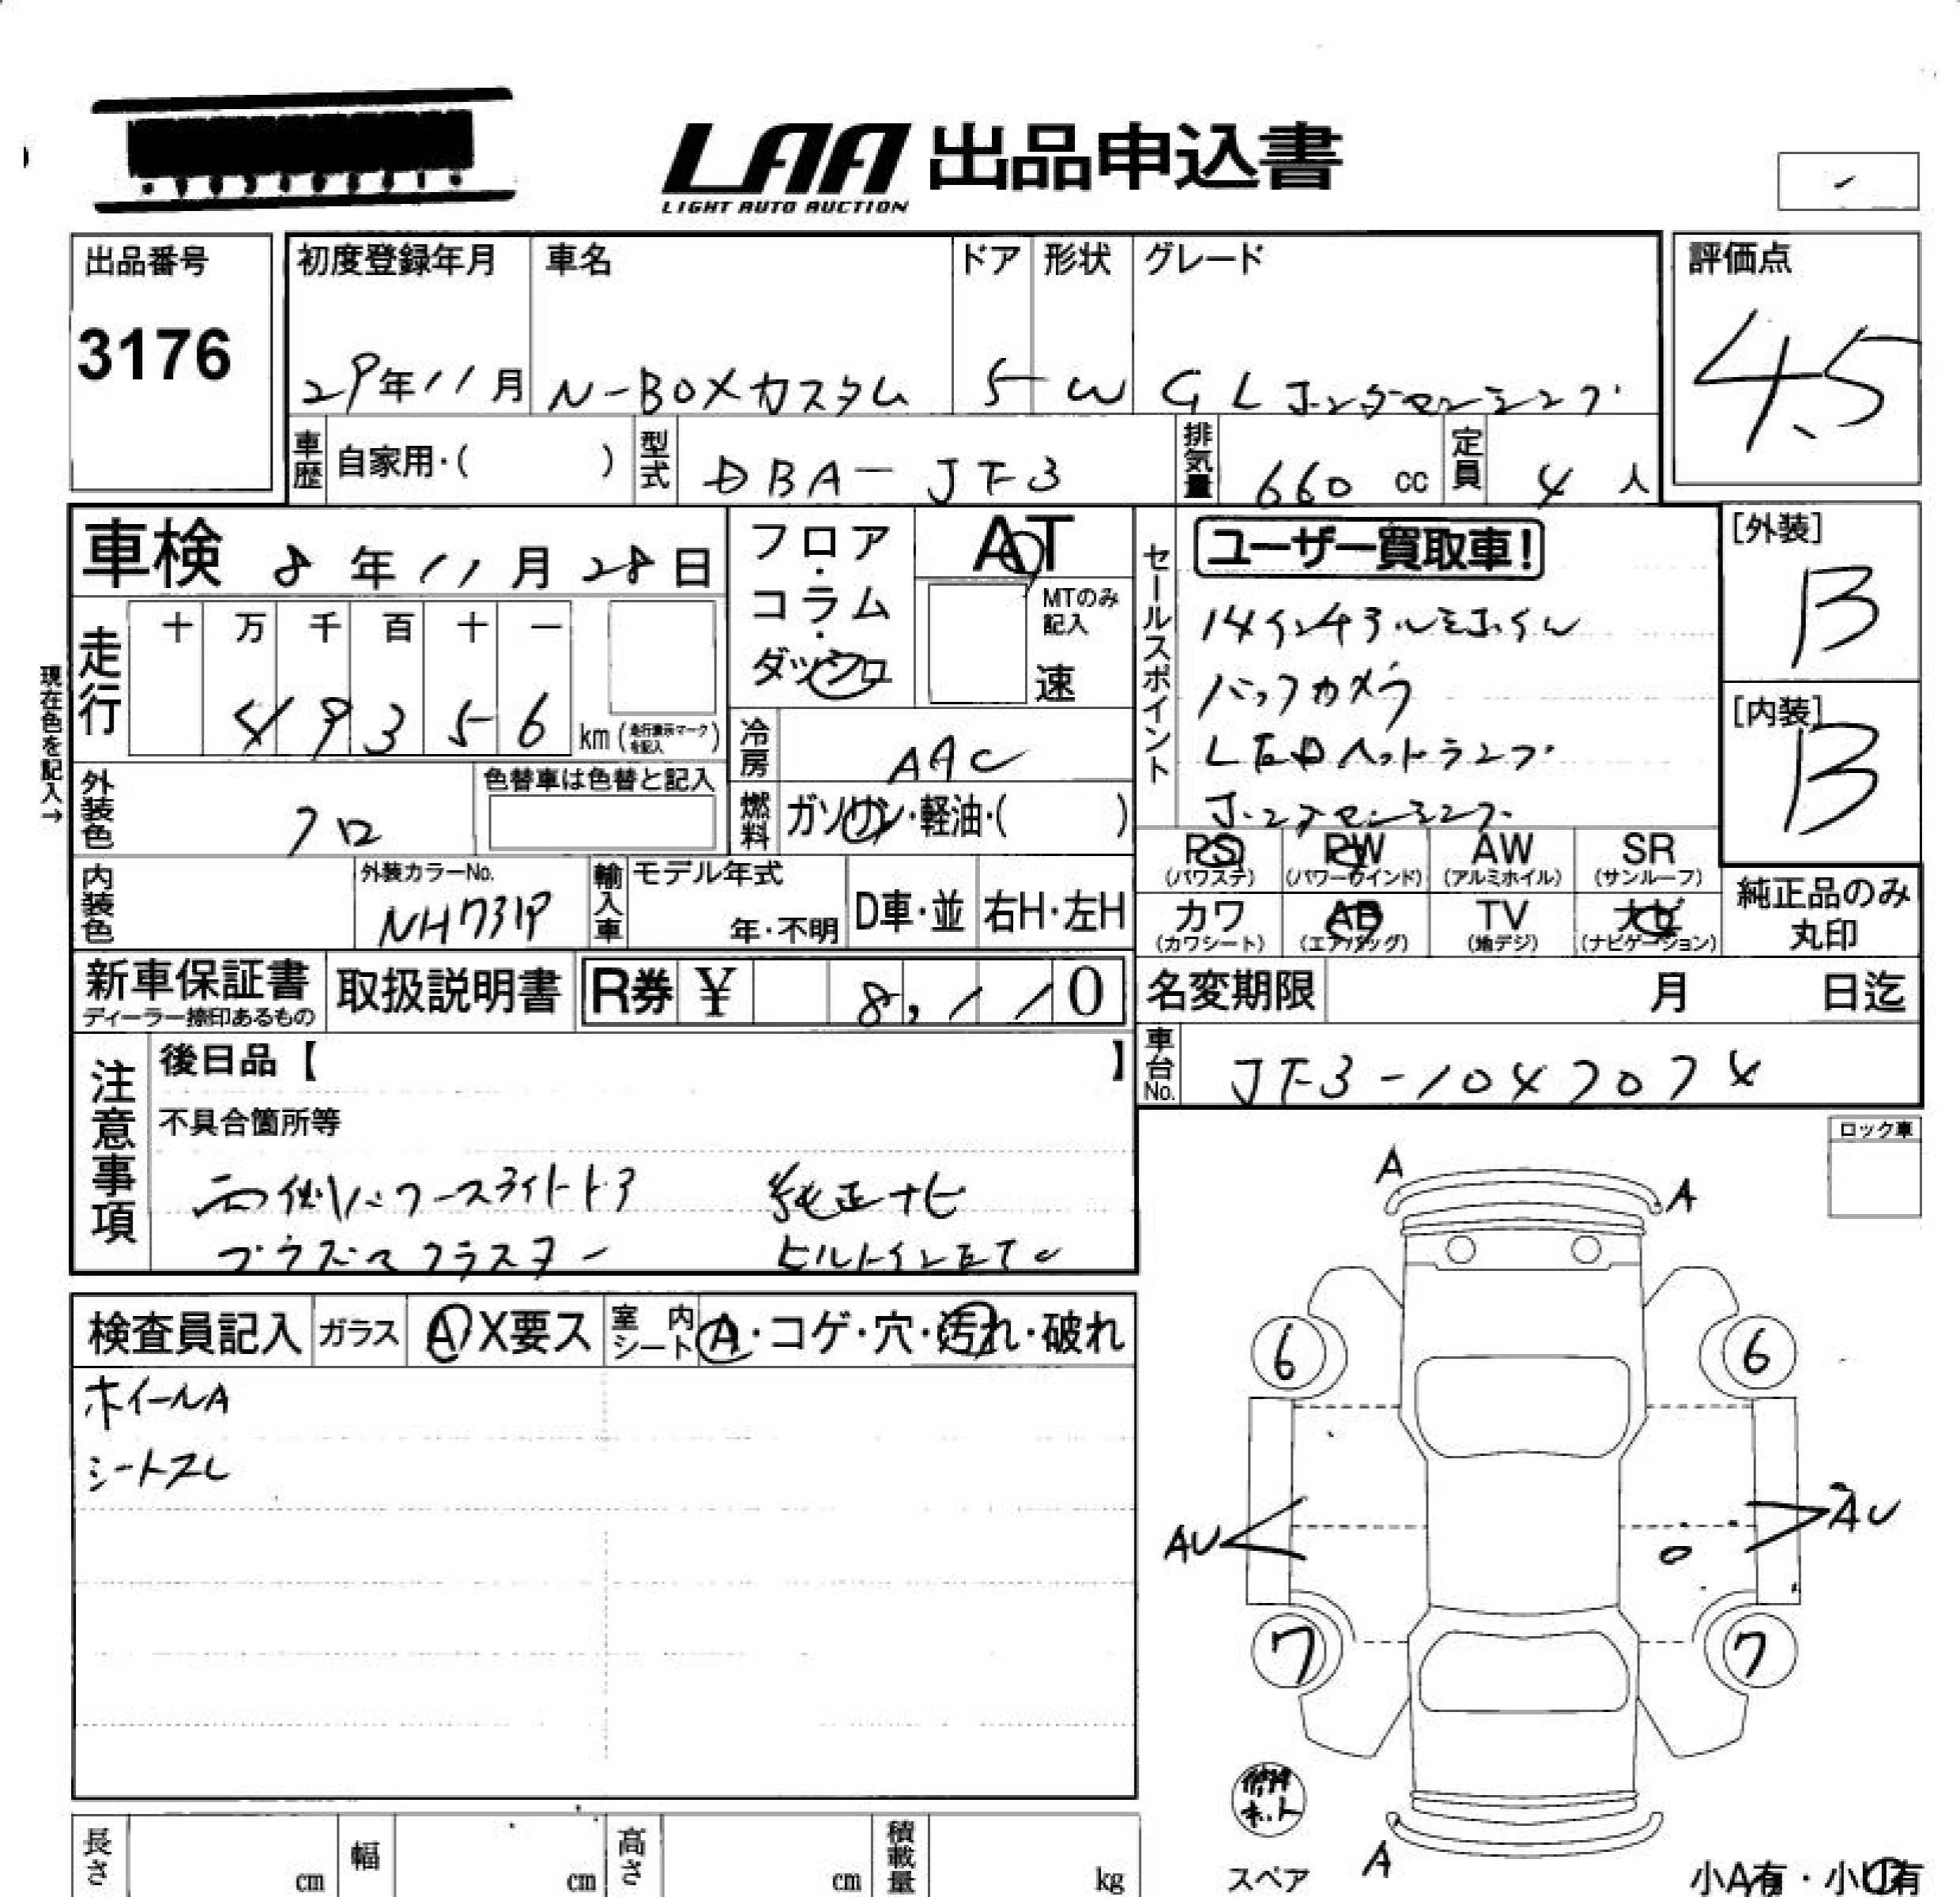 LAA 出品申込書
LIGHT AUTO AUCTION
出品番号
3176
初度登録年月 車名 ドア 形状 グレード
29年11月 N-BOXカスタム 5 W GL ホンダセンシング
評価点
4.5
車歴 自家用・( ) 型式 DBA-JF3 排気量 660 cc 定員 4 人
車検 8年11月28日
フロア・コラム・ダッシュ
AT
MTのみ記入
速
セールスポイント
ユーザー買取車!
14インチアルミホイル
バックカメラ
LEDヘッドランプ
ホンダセンシング
[外装]
B
[内装]
B
現在色を記入→
走行 十 万 千 百 十 一
4 9 3 5 6 km (走行表示マークを記入)
冷房 AAC
外装色 クロ 色替車は色替と記入
燃料 ガソリン・軽油・( )
内装色 外装カラーNo.
NH731P
輸入車 モデル年式
年・不明 D車・並 右H・左H
PS PW AW SR
(パワステ) (パワーウインド) (アルミホイル) (サンルーフ)
カワ AB TV ナビ
(カワシート) (エアバッグ) (地デジ) (ナビゲーション)
純正品のみ
丸印
新車保証書
ディーラー捺印あるもの
取扱説明書 R券 ¥ 8,110
名変期限 月 日迄
車台No. JF3-1047074
注意事項
後日品【 】
不具合箇所等
両側パワースライドドア 純正ナビ
プラズマクラスター ビルトインETC
ロック車
検査員記入 ガラス A X要ス 室内シート A・コゲ・穴・汚れ・破れ
ホイールA
シートスレ
A A
6 6
AU AU
7 7
A
スペア
小A有・小U有
長さ cm 幅 cm 高さ cm 積載量 kg